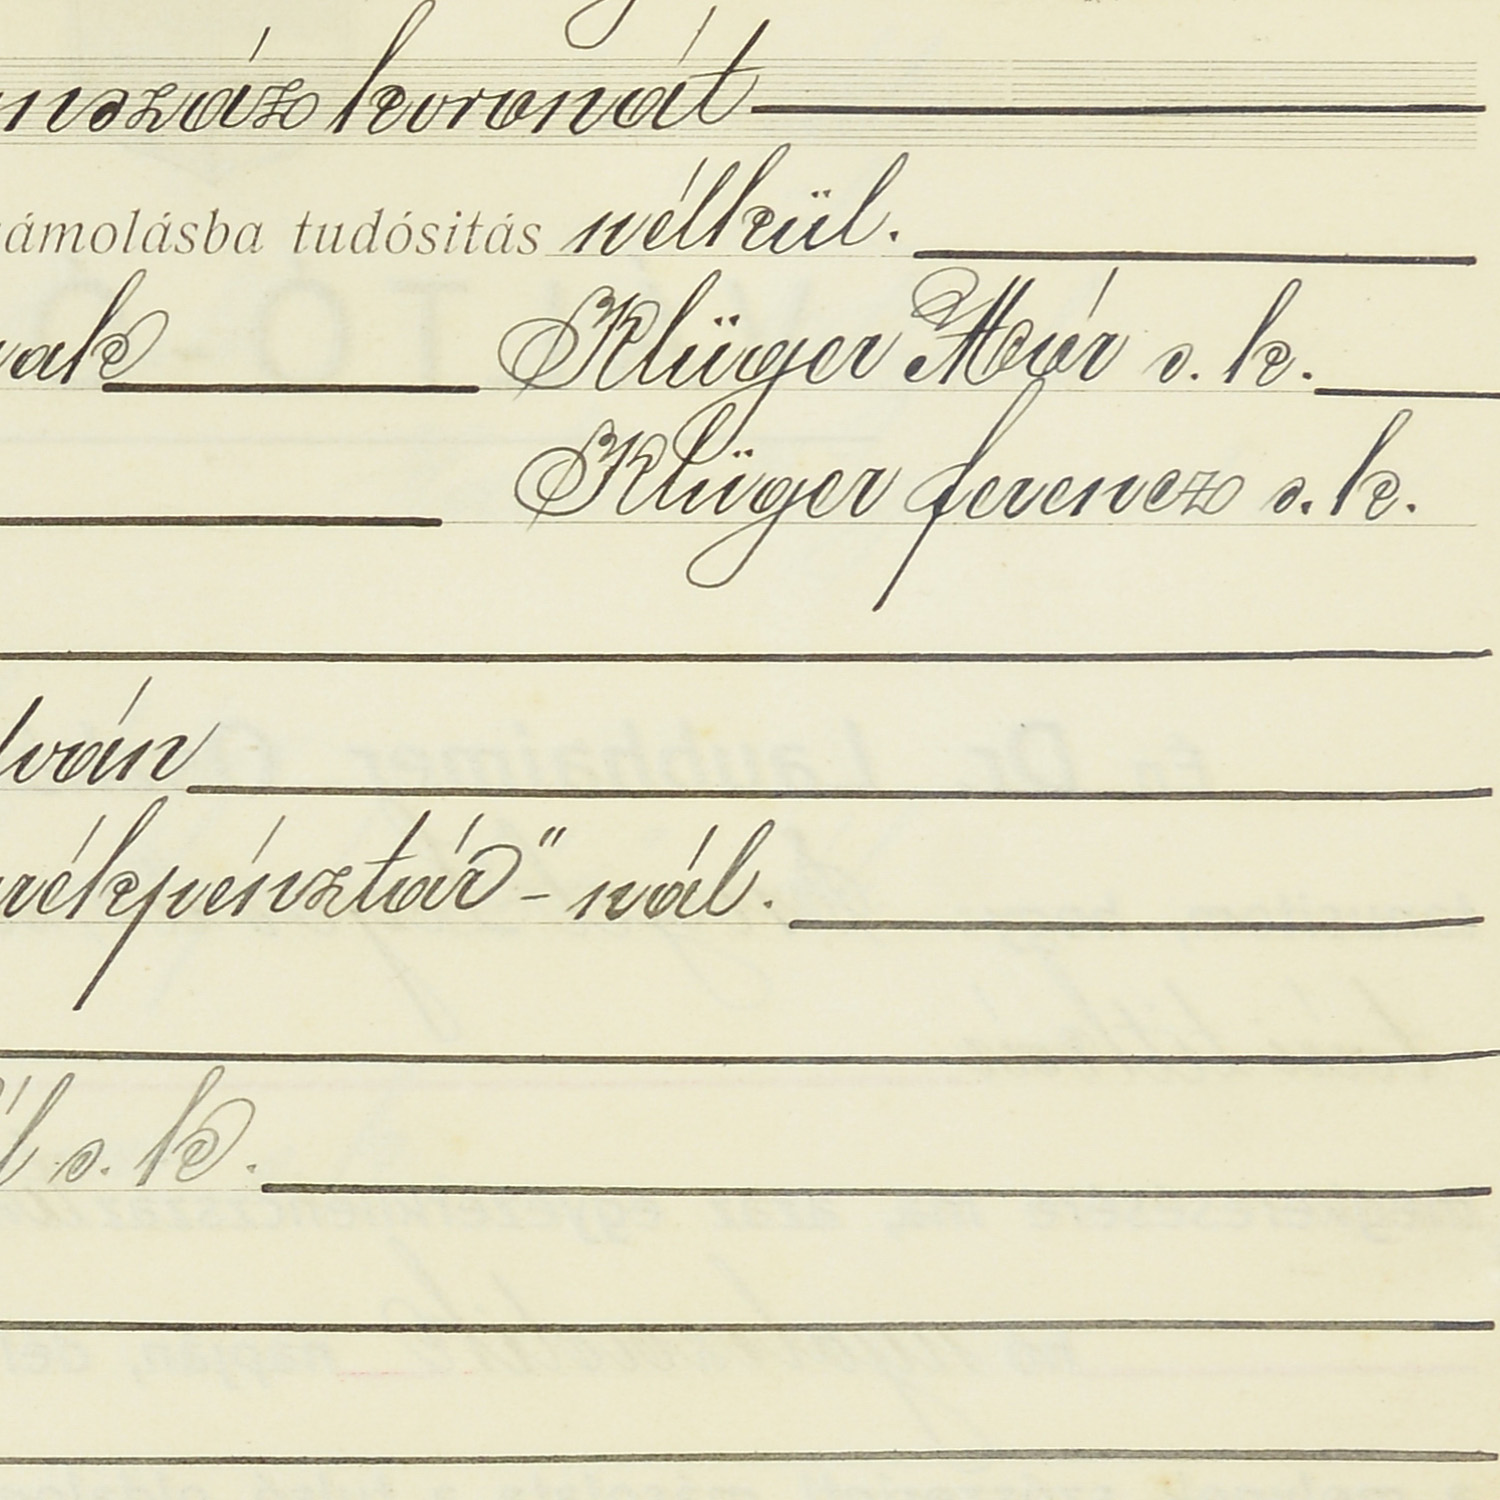 nszáz koronát
zámolásba tudósitás nélkül.
nak Klüger Mór s. k.
Klüger ferencz s. k.
tván
rékpénztár" - nál.
l s. k.